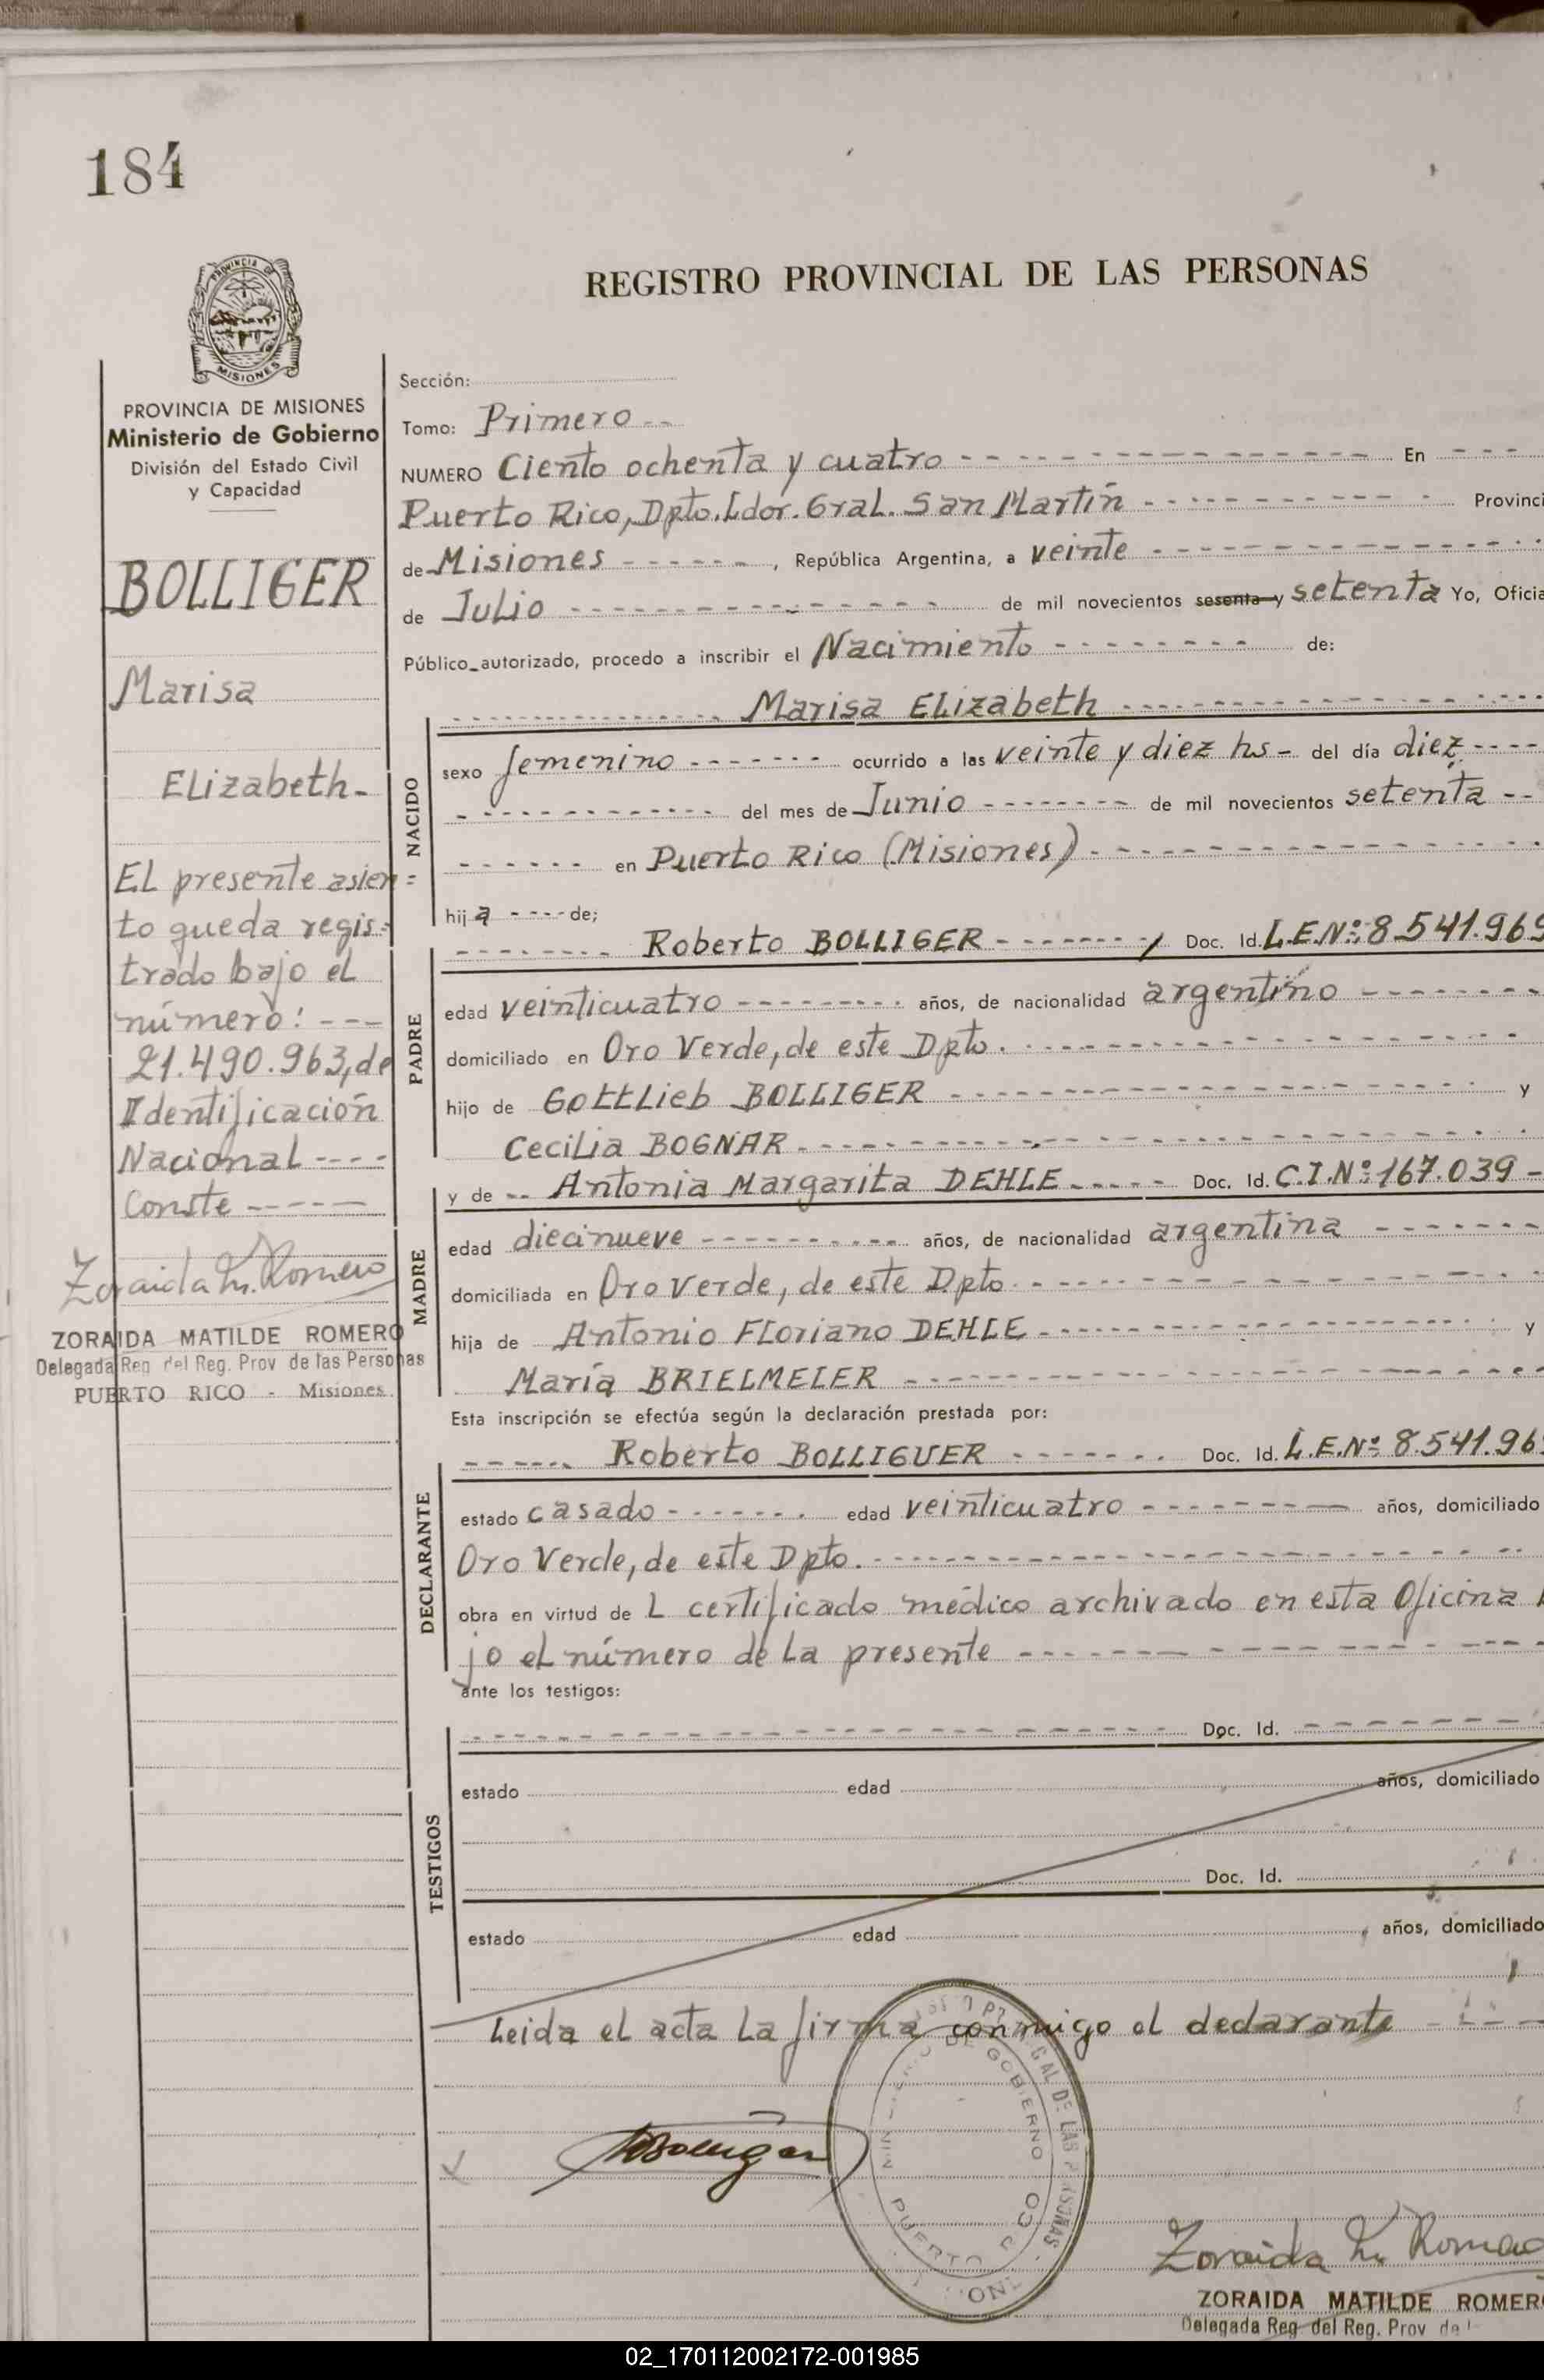 184
REGISTRO PROVINCIAL DE LAS PERSONAS
MISIONES
PROVINCIA DE MISIONES
Ministerio de Gobierno
División del Estado Civil
y Capacidad
BOLLIGER
Marisa
Elizabeth-
El presente asien=
to queda regis=
trado bajo el
número: ---
21.490.963, de
Identificación
Nacional ----
Conste -----
Zoraida M. Romero
ZORAIDA MATILDE ROMERO
Delegada Reg. del Reg. Prov. de las Personas
PUERTO RICO - Misiones
Sección:
Tomo: Primero --
NUMERO Ciento ochenta y cuatro --- En ---
Puerto Rico, Dpto. Ldor. Gral. San Martín --- Provinci
de Misiones ---, República Argentina, a veinte ---
de Julio --- de mil novecientos sesenta y setenta Yo, Oficia
Público autorizado, procedo a inscribir el Nacimiento --- de:
NACIDO
--- Marisa Elizabeth ---
sexo femenino --- ocurrido a las veinte y diez hs- del día diez ---
--- del mes de Junio --- de mil novecientos setenta --
--- en Puerto Rico (Misiones) ---
hija ---- de;
PADRE
--- Roberto BOLLIGER --- Doc. Id. L.E.Nº: 8.541.969
edad veinticuatro --- años, de nacionalidad argentino ---
domiciliado en Oro Verde, de este Dpto. ---
hijo de Gottlieb BOLLIGER --- y
Cecilia BOGNAR ---
MADRE
y de -- Antonia Margarita DEHLE --- Doc. Id. C.I.Nº: 167.039 -
edad diecinueve --- años, de nacionalidad argentina ---
domiciliada en Oro Verde, de este Dpto. ---
hija de Antonio Floriano DEHLE --- y
María BRIELMEIER ---
Esta inscripción se efectúa según la declaración prestada por:
DECLARANTE
--- Roberto BOLLIGUER --- Doc. Id. L.E.Nº: 8.541.96
estado casado --- edad veinticuatro --- años, domiciliado
Oro Verde, de este Dpto. ---
obra en virtud de l certificado médico archivado en esta Oficina
jo el número de la presente ---
ante los testigos:
TESTIGOS
--- Doc. Id. ---
estado edad años, domiciliado
Doc. Id.
estado edad años, domiciliado
Leida el acta la firma conmigo el declarante ---
DE GOBIERNO
PUERTO RICO
Zoraida M. Romero
ZORAIDA MATILDE ROMER
Delegada Reg. del Reg. Prov.
02_170112002172-001985